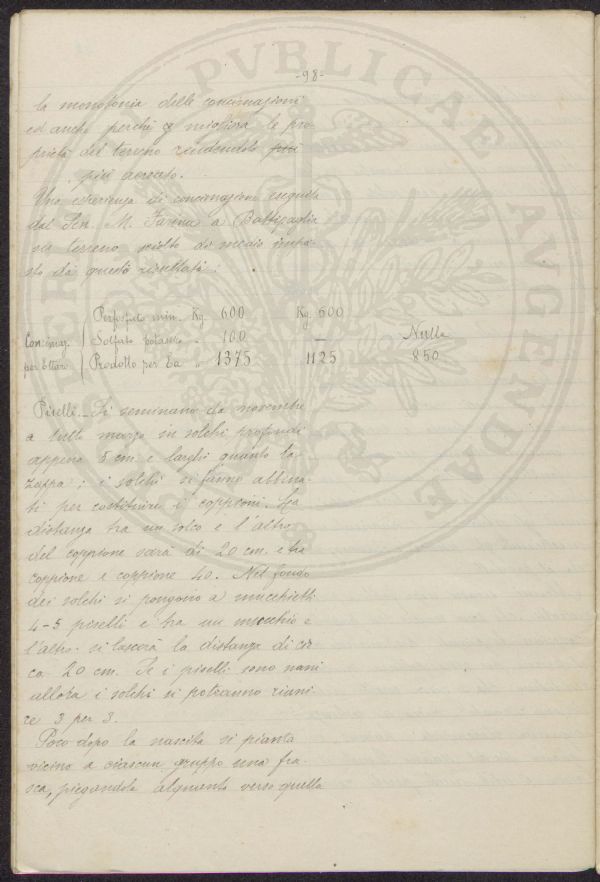 -98-
la monotonia delle concimazioni
ed anche perchè migliora le pro-
prietà del terreno rendendolo
più aerato.
Una esperienza di concimazione eseguita
dal Sen. M. Farina a Battipaglia
su terreno sciolto di medio impa-
sto dà questi risultati:
Perfosfato min. Kg. 600 Kg. 600
Concimaz. Solfato potassico " 100 — Nulla
per Ettaro Prodotto per Ea " 1375 1125 850
Piselli - Si seminano da novembre
a tutto marzo in solchi profondi
appena 5 cm. e larghi quanto la
zappa; i solchi si fanno abbina-
ti per costituire i copponi. La
distanza tra un solco e l'altro
del coppone sarà di 20 cm. e tra
coppone e coppone 40. Nel fondo
dei solchi si pongono a mucchietti
4-5 piselli e tra un mucchio e
l'altro si lascerà la distanza di cir
ca 20 cm. Se i piselli sono nani
allora i solchi si potranno riuni-
re 3 per 3.
Poco dopo la nascita si pianta
vicino a ciascun gruppo una fra-
sca, piegandola alquanto verso quella
PVBLICAE AVGENDAE